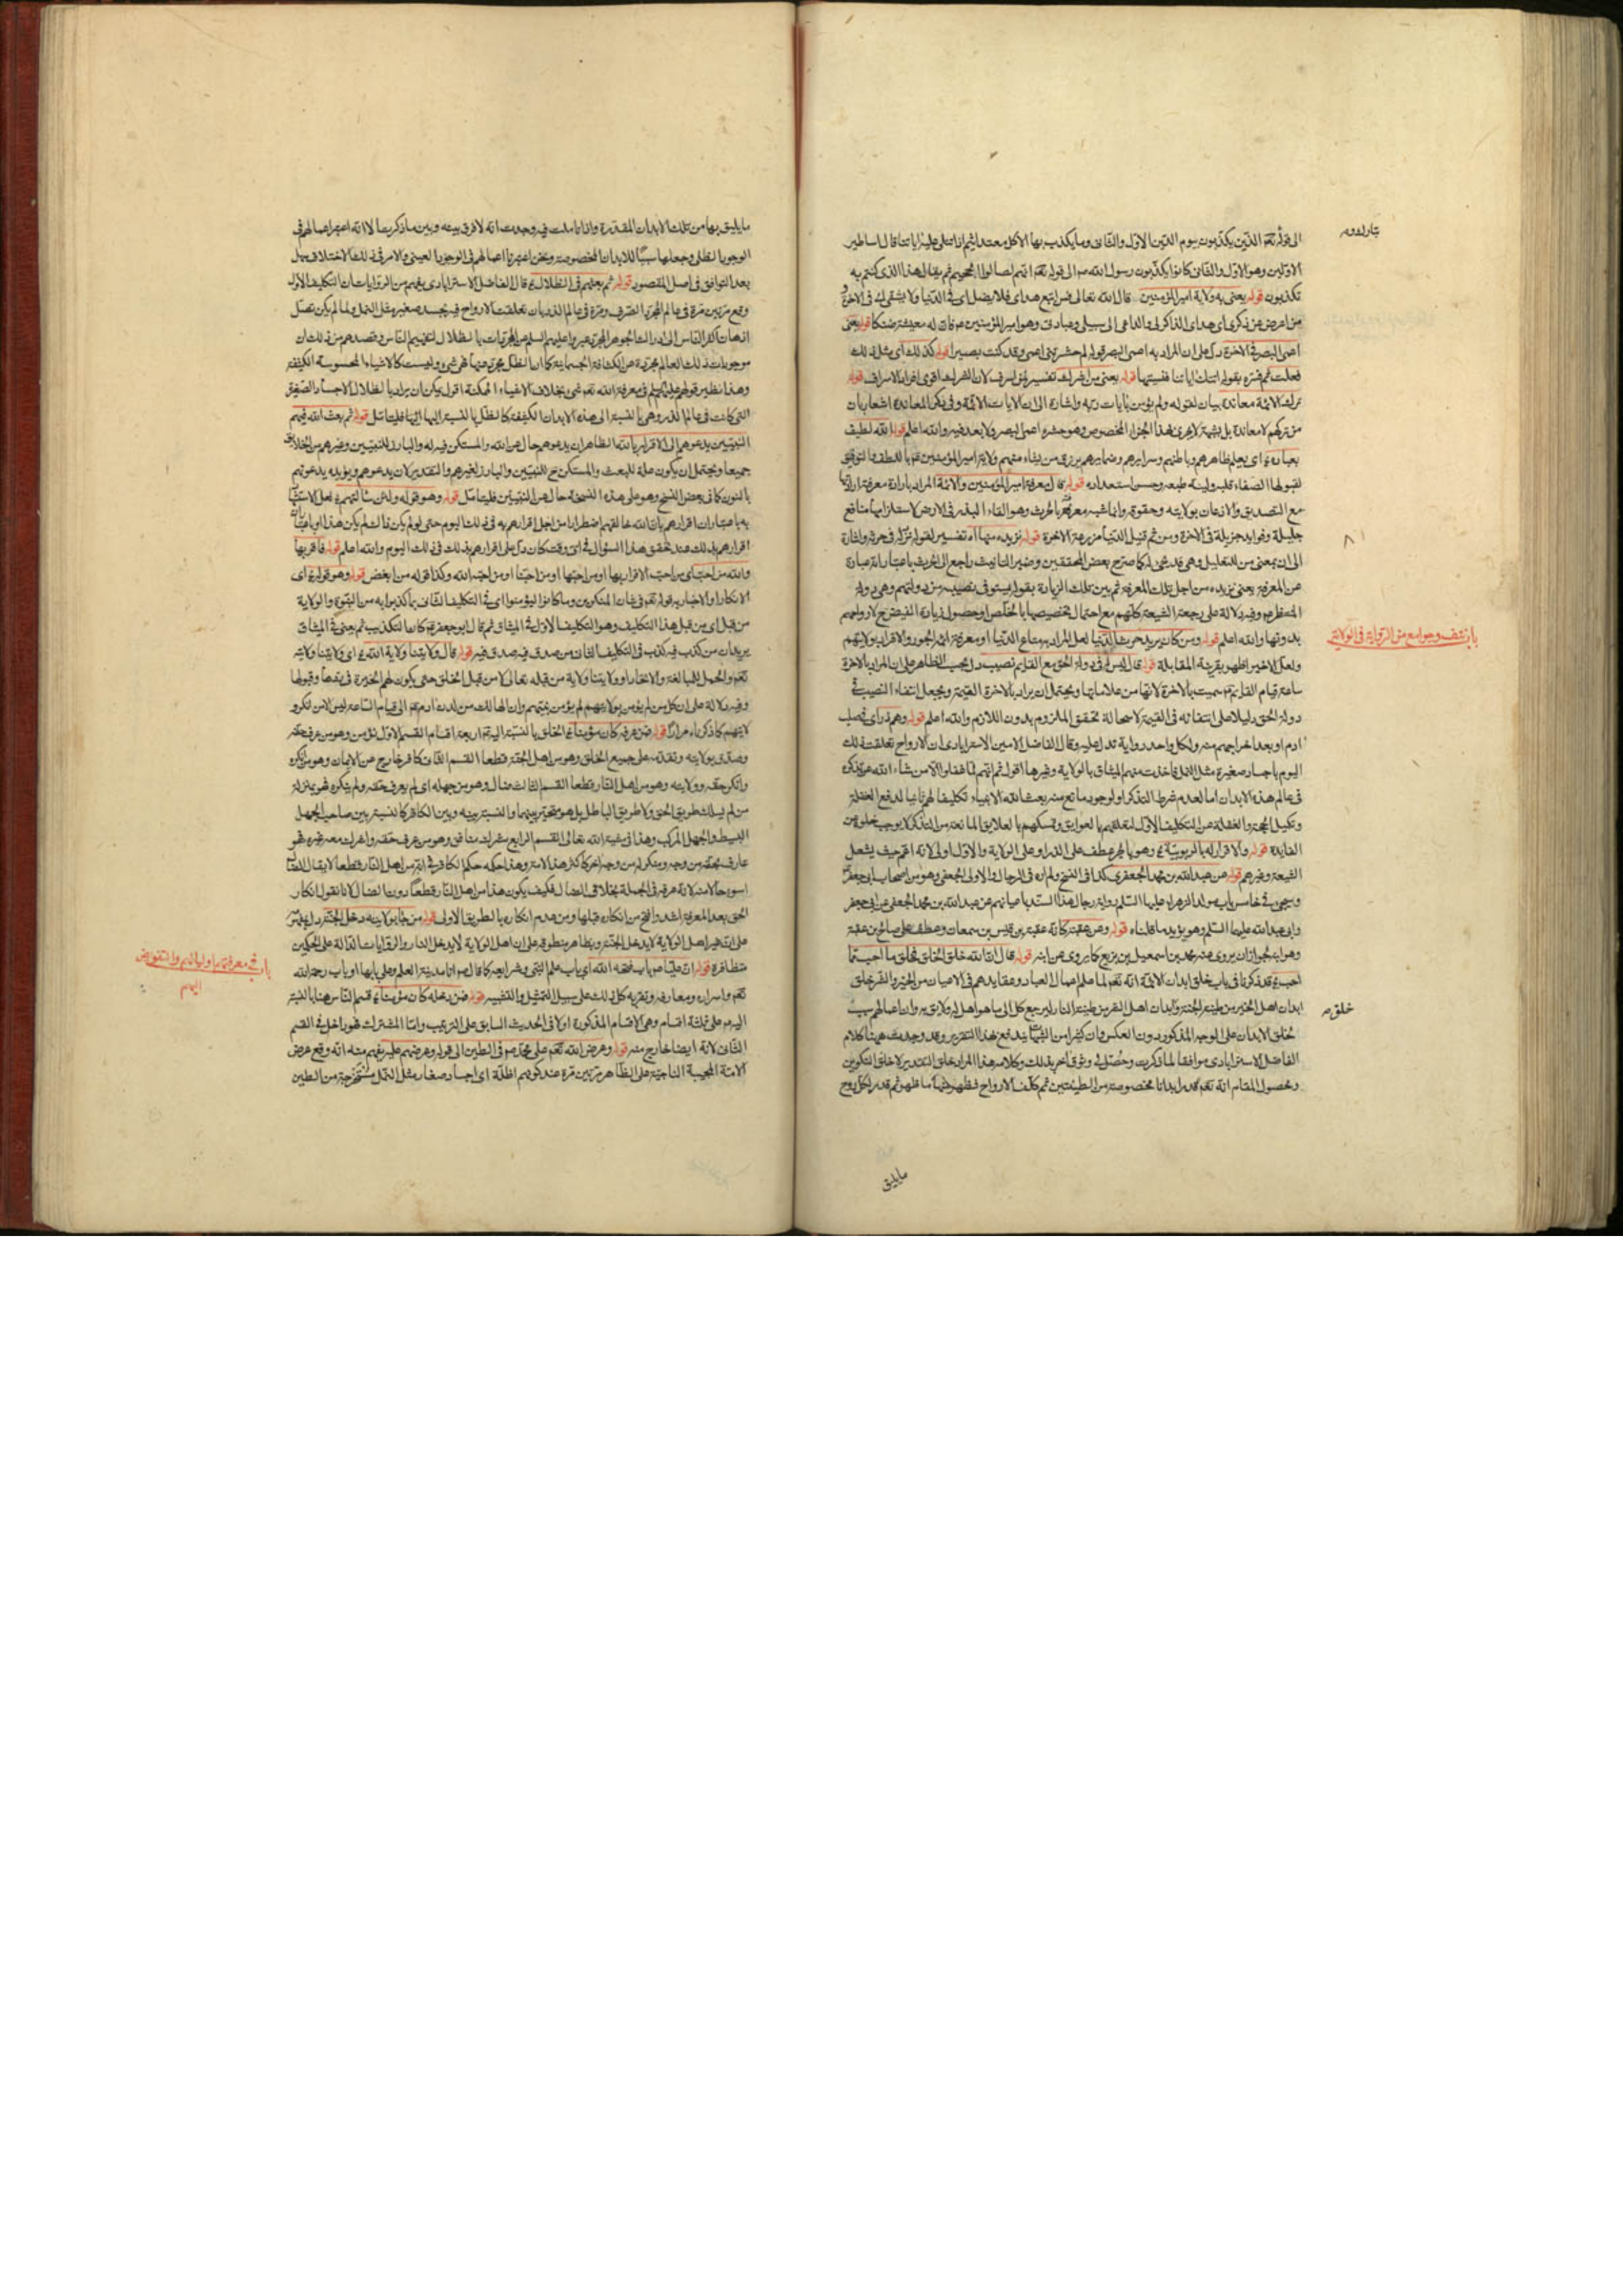 الى قوله تعم الذين يكذبون بيوم الدين الاول والثانى وما يكذب بها الا كل معتد اثيم اذا تتلى عليه اياتنا قال اساطير
الاولين وهو الاول والثانى كانوا يكذبون رسول الله ص الى قوله تعم انهم لصالوا الجحيم ثم يقال هذا الذى كنتم به
تكذبون قوله يعنى به ولاية امير المؤمنين قال الله تعالى فمن اتبع هداى فلا يضل اى فى الدنيا ولا يشقى فى الاخرة و
من اعرض عن ذكرى اى هداى الذاكر لى والداعى الى سبيلى وعبادتى وهو امير المؤمنين ع فان له معيشة ضنكا قوله يعنى
اعمى البصر فى الاخرة دل على ان المراد به اعمى البصر قوله لم حشرتنى اعمى وقد كنت بصيرا قوله كذلك اى مثل ذلك
فعلت ثم فسره بقوله اتتك اياتنا فنسيتها قوله يعنى من اشرك تفسير لمن اسرف لان الشرك اقوى افراد الاسراف قوله
ترك الائمة معاندة بيان لقوله ولم يؤمن بايات ربه واشارة الى ان الايات الائمة وفى ذكر المعاندة اشعار بان
من تركهم لا معاندة بل بشبهة لا يجرى هذا الجزاء المخصوص وهو حشره اعمى البصر ولا بعد فيه والله اعلم قوله الله لطيف
بعباده اى يعلم ظاهرهم وباطنهم وسرايرهم وضمايرهم يرزق من يشاء منهم ولاية امير المؤمنين ع باللطف والتوفيق
لقبولها لصفاء قلبه ولينة طبعه وحسن استعداده قوله قال معرفة امير المؤمنين والائمة المراد بارادة معرفته ارادتها
مع التصديق والاذعان بولايته وحقوقه وانما شبه معرفتهم بالحرث وهو القاء البذر فى الارض لاستلزامها منافع
جليلة وفوايد جزيلة فى الاخرة ومن ثم قيل الدنيا مزرعة الاخرة قوله نزيده منها اه تفسير لقوله نزد له فى حرثه واشارة
الى ان بمعنى من للتعليل وهى قد تجئ له كما صرح بعض المحققين وضمير التانيث راجع الى الحرث باعتبار انه عبارة
عن المعرفة يعنى نزيده من اجل تلك المعرفة ثم بين تلك الزيادة بقوله يستوفى نصيبه من دولتهم وهى دولة
المنتظر ع وفيه دلالة على رجعة الشيعة كلهم مع احتمال تخصيصها بالخلص او حصول زيادة الفيض ح لارواحهم
بدونها والله اعلم قوله ومن كان يريد حرث الدنيا لعل المراد به متاع الدنيا او معرفة ائمة الجور والاقرار بولايتهم
ولعل الاخير اظهر بقرينة المقابلة قوله قال ليس له فى دولة الحق مع القايم نصيب دل بحسب الظاهر على ان المراد بالاخرة
ساعة قيام القايم ع سميت بالاخرة لانها من علاماتها ويحتمل ان يراد بالاخرة القيمة ويجعل انتفاء النصيب فى
دولة الحق دليلا على انتفائه فى القيمة لاستحالة تحقق الملزوم بدون اللازم والله اعلم قوله وهم ذر اى فى صلب
ادم او بعد اخراجهم منه ولكل واحد رواية تدل عليه وقال الفاضل الامين الاسترابادى ان الارواح تعلقت ذلك
اليوم باجساد صغيرة مثل النمل فاخذت منهم الميثاق بالولاية وغيرها اقول ثم انهم لما غفلوا الا من شاء الله عن تذكره
فى عالم هذه الابدان اما لعدم شرط التذكر او لوجود مانع منه بعث الله الانبياء تكليفا لهم ثانيا لدفع الغفلة
وتكميل الحجة والغفلة عن التكليف الاول لتعلقهم بالعوايق وتمسكهم بالعلايق المانعة من التذكر لا يوجب خلوه من
الفايدة قوله والاقرار له بالربوبية وهو بالجر عطف على الذر او على الولاية والاول اولى لانه اعم حيث يشعل
الشيعة وغيرهم قوله عن عبدالله بن محمد الجعفرى كذا فى النسخ ولم اره فى الرجال والاولى الجعفى وهو من اصحاب ابى جعفر
وسيجئ فى خامس باب مولد الزهراء عليها السلم رواية رجال هذا السند باعيانهم عن عبدالله بن محمد الجعفى عن ابى جعفر
وابى عبدالله عليهما السلم وهو يؤيد ما قلناه قوله وعن عقبة كانه عقبة بن قيس بن سمعان وعطف على صالح بن عقبة
وهو ابنه لجواز ان يروى عنه محمد بن اسمعيل بن بزيع كما يروى عن ابنه قوله قال ان الله خلق الخلق فخلق ما احب مما
احب قد ذكرنا فى باب خلق ابدان الائمة انه تعم لما علم اعمال العباد وعقايدهم فى الاعيان من الخير والشر خلق
ابدان اهل الخير من طينة الجنة وابدان اهل الشر من طينة النار ليرجع كل الى ما هو اهل له ولايق به وان اعمالهم سبب
لخلق الابدان على الوجه المذكور دون العكس وان كثيرا من الشبهات يندفع بهذا التقرير وقد وجدت ههنا كلام
الفاضل الاسترابادى موافقا لما ذكرت وحصل لى وثوق اخر بذلك وكلامه هذا المراد خلق التقدير لا خلق التكوين
ومحصول المقام انه تعم قدر ابدانا مخصوصة من الطينتين ثم كلف الارواح فظهر منها ما ظهر ثم قدر لكل روح
مايليق
باب نتف وجوامع من الرواية فى الولاية
خلق ص
ما يليق بها من تلك الابدان المقدرة وانا تاملت فيه وجدت انه لا فرق بينه وبين ما ذكرت الا انه اعتبر اعمالهم فى
الوجود الظلى وجعلها سببا للابدان المخصوصة ونحن اعتبرنا اعمالهم فى الوجود العينى والامر فى ذلك الاختلاف سهل
بعد التوافق فى اصل المقصود قوله ثم بعثهم فى الظلال قال الفاضل الاسترابادى يفهم من الروايات ان التكليف الاول
وقع مرتين مرة فى عالم المجرد الصرف ومرة فى عالم الذر بان تعلقت الارواح فيه بجسد صغير مثل النمل ولما لم يكن تصل
اذهان اكثر الناس الى ادراك الجوهر المجرد عبروا عليهم السلم عن المجردات بالظلال لتفهيم الناس وقصدهم من ذلك ان
موجودات ذلك العالم مجردة عن الكثافة الجسمانية كما ان الظل مجرد عنها فهى شئ وليست كالاشياء المحسوسة الكثيفة
وهذا نظير قولهم عليهم السلم فى معرفة الله تعم شئ بخلاف الاشياء الممكنة اقول يمكن ان يراد بالظلال الاجساد الصغيرة
التى كانت فى عالم الذر وهى بالنسبة الى هذه الابدان الكثيفة كالظل بالنسبة اليها فليتامل قوله ثم بعث الله فيهم
النبيين يدعوهم الى الاقرار بالله الظاهر ان يدعوهم حال عن الله والمستكن فيه له والبارز للنبيين وغيرهم من الخلايق
جميعا ويحتمل ان يكون علة للبعث والمستكن ح للنبيين والبارز لغيرهم والتقدير لان يدعوهم ويؤيده يدعونهم
بالنون كما فى بعض النسخ وهو على هذه النسخة حال عن النبيين فليتامل قوله وهو قوله ولئن سالتهم لعل الاستشهاد
به باعتبار ان اقرارهم بان الله خالقهم اضطرارا من اجل اقرارهم به فى ذلك اليوم حتى لو لم يكن ذلك لم يكن هذا او باعتبار ان
اقرارهم بذلك عند تحقق هذا السؤال فى اى وقت كان دل على اقرارهم بذلك فى ذلك اليوم والله اعلم قوله فاقر بها
والله من احب اى من احب الاقرار بها او من احبها او من احبنا او من احب الله وكذا قوله من ابغض قوله وهو قوله اى
الانكار والاخبار به قوله تعم فى شان المنكرين وما كانوا ليؤمنوا اى فى التكليف الثانى بما كذبوا به من النبوة والولاية
من قبل اى من قبل هذا التكليف وهو التكليف الاول فى الميثاق ثم قال ابو جعفر ع كان التكذيب ثم يعنى فى الميثاق
يريد ان من كذب فيه كذب فى التكليف الثانى ومن صدق فيه صدق فيه قوله قال ولايتنا ولاية الله اى ولايتنا ولايته
تعم والحمل للمبالغة والاتحاد او ولايتنا ولاية من قبله تعالى لا من قبل الخلق حتى يكون لهم الخيرة فى بعضها وقبولها
وفيه دلالة على ان كل من لم يؤمن بولايتهم لم يؤمن بنبيهم وان الهالك من لدن ادم ع الى قيام الساعة ليس الا من انكر و
لايتهم كما ذكرناه مرارا قوله فمن عرفه كان مؤمنا الخلق بالنسبة اليه ع اربعة اقسام القسم الاول مؤمن وهو من عرف حقه
وصدق بولايته وتقدمه على جميع الخلق وهو من اهل الجنة قطعا القسم الثانى كافر خارج عن الايمان وهو من انكره
وانكر حقه وولايته وهو من اهل النار قطعا القسم الثالث ضال وهو من جهله اى لم يعرف حقه ولم ينكره فهو بمنزلة
من لم يسلك طريق الحق ولا طريق الباطل بل هو متحير بينهما والنسبة بينه وبين الكافر كالنسبة بين صاحب الجهل
البسيط والجهل المركب وهذا فى مشية الله تعالى القسم الرابع مشرك منافق وهو من عرف حقه واشرك معه غيره فهو
عارف بحقه من وجه ومنكر له من وجه اخر كاكثر هذه الامة وهذا حكمه حكم الكافر فى انه من اهل النار قطعا لا يقال الضال
اسوء حالا منه لانه عرفه فى الجملة بخلاف الضال فكيف يكون هذا من اهل النار قطعا دون الضال لانا نقول انكار
الحق بعد المعرفة اشد واقبح من انكاره قبلها ومن عدم انكاره بالطريق الاولى قوله من جاء بولايته دخل الجنة
على ان غير اهل الولاية لا يدخل الجنة وبظاهر منطوقه على ان اهل الولاية لا يدخل النار والروايات الدالة على الحكمين
متظافرة قوله ان عليا ع باب فتحه الله اى باب علم النبى وشرايعه كما قال ص انا مدينة العلم وعلى بابها او باب رحمة الله
تعم واسراره ومعارفه وتقربه كل ذلك على سبيل التمثيل والتشبيه قوله فمن دخله كان مؤمنا قسم الناس هنا بالنسبة
اليه ع على ثلثة اقسام وهى الاقسام المذكورة اولا فى الحديث السابق على الترتيب واما المشترك فهو داخل فى القسم
الثانى لانه ايضا خارج منه قوله وعرض الله تعم على محمد ص فى الطين الى قوله وعرضهم عليه يفهم منه انه وقع عرض
الامة المجيبة الناجية على الظاهر مرتين مرة عند كونهم اظلة اى اجساد صغار مثل النمل مستخرجة من الطين
باب فى معرفتهم اوليائهم والتفويض
اليهم